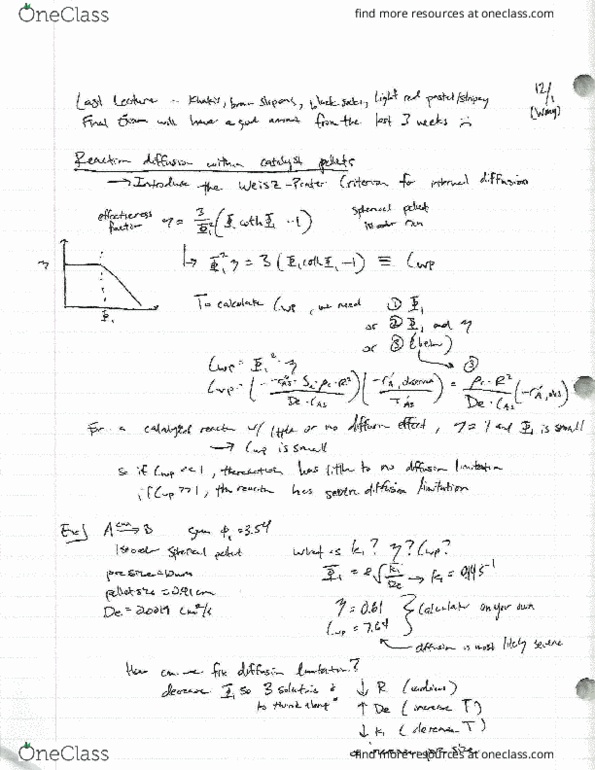 OneClass
find more resources at oneclass.com
12/1
Last Lecture - Khakis, brown slip ons, black socks, light red pastel/stripey
(Wang)
Final Exam will have a good amount from the last 3 weeks
Reaction diffusion within catalyst pellets
→ Introduce the Weisz-Prater Criterion for internal diffusion
effectiveness factor η = 3/Φ₁² (Φ₁ coth Φ₁ - 1)
spherical pellet
1st order rxn
↳ Φ₁²η = 3 (Φ₁ coth Φ₁ - 1) ≡ Cwp
η
Φ₁
To calculate Cwp, we need ① Φ₁
or ② Φ₁ and η
or ③ (below)
Cwp = Φ₁² · η
③
Cwp = (-r'As · Sa · ρc · R² / De · CAs) (-r'A, observed / -r'As) = ρc · R² / De · CAs (-r'A, obs)
For a catalyzed reaction w/ little or no diffusion effect, η = 1 and Φ₁ is small
→ Cwp is small
so if Cwp <<1, the reaction has little to no diffusion limitation
if Cwp >>1, the reaction has severe diffusion limitation
Ex] A → B given Φ₁ = 3.54
1st order spherical pellet
What is k₁? η? Cwp?
pore size
Φ₁ = R √(k₁/De) → k₁ =
pellet size =
De = cm²/s
η = 0.61
Cwp = 7.64
calculate on your own
diffusion is most likely severe
How can we fix diffusion limitation?
decrease Φ₁ so 3 solutions to think along
↓ R
↑ De (increase T)
↓ k₁ (decrease T)
OneClass
find more resources at oneclass.com